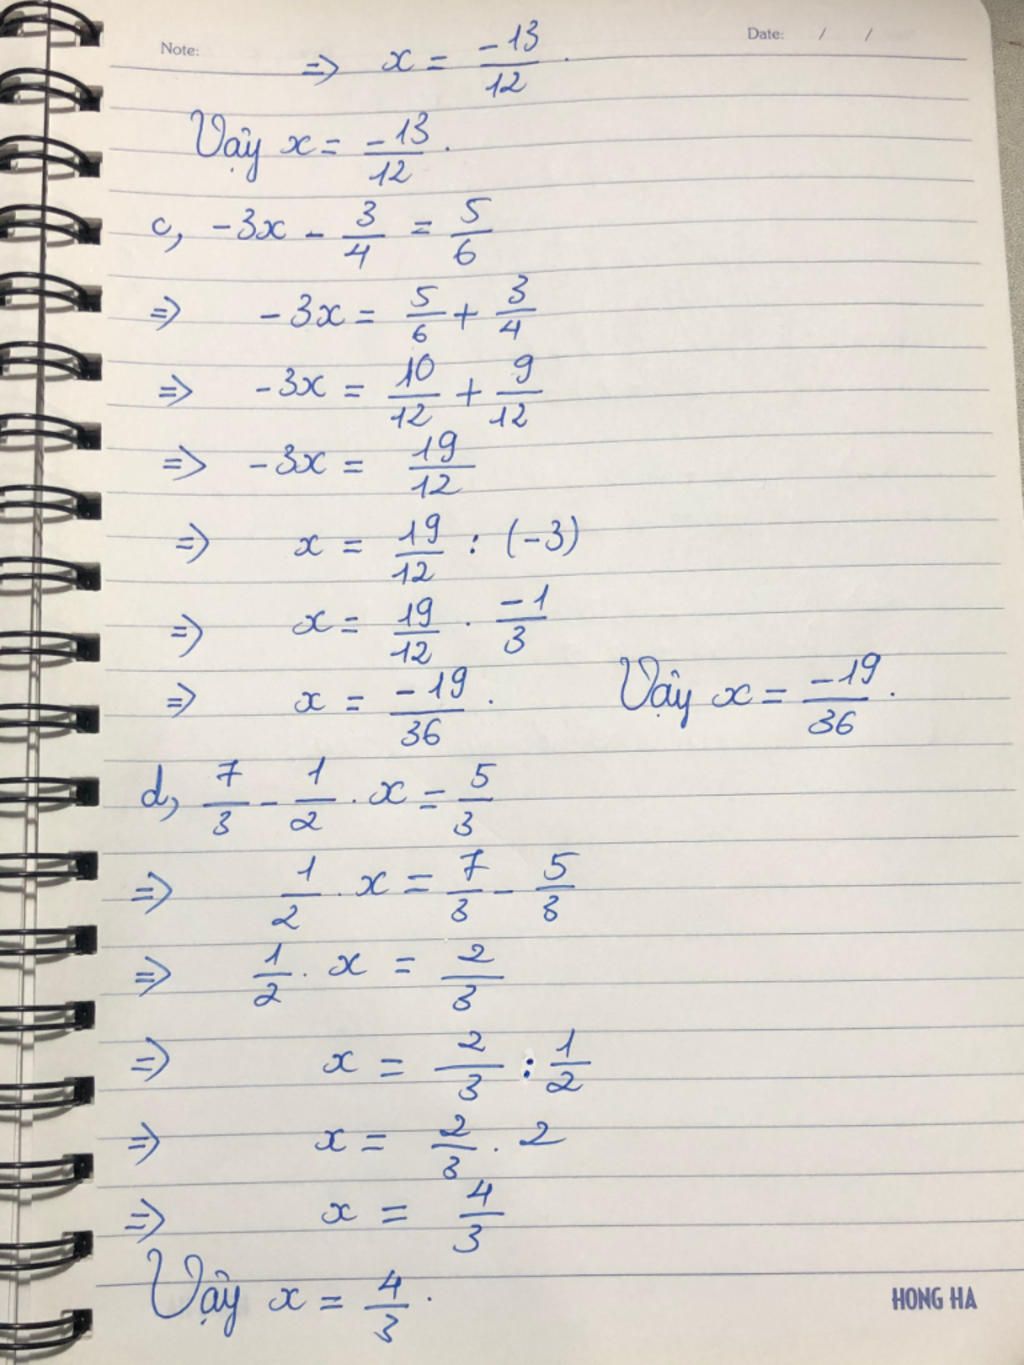 Note: Date: / /
=> x = -13/12.
Vậy x = -13/12.
c, -3x - 3/4 = 5/6
=> -3x = 5/6 + 3/4
=> -3x = 10/12 + 9/12
=> -3x = 19/12
=> x = 19/12 : (-3)
=> x = 19/12 . -1/3
=> x = -19/36. Vậy x = -19/36.
d, 7/3 - 1/2 . x = 5/3
=> 1/2 . x = 7/3 - 5/3
=> 1/2 . x = 2/3
=> x = 2/3 : 1/2
=> x = 2/3 . 2
=> x = 4/3
Vậy x = 4/3.
HONG HA